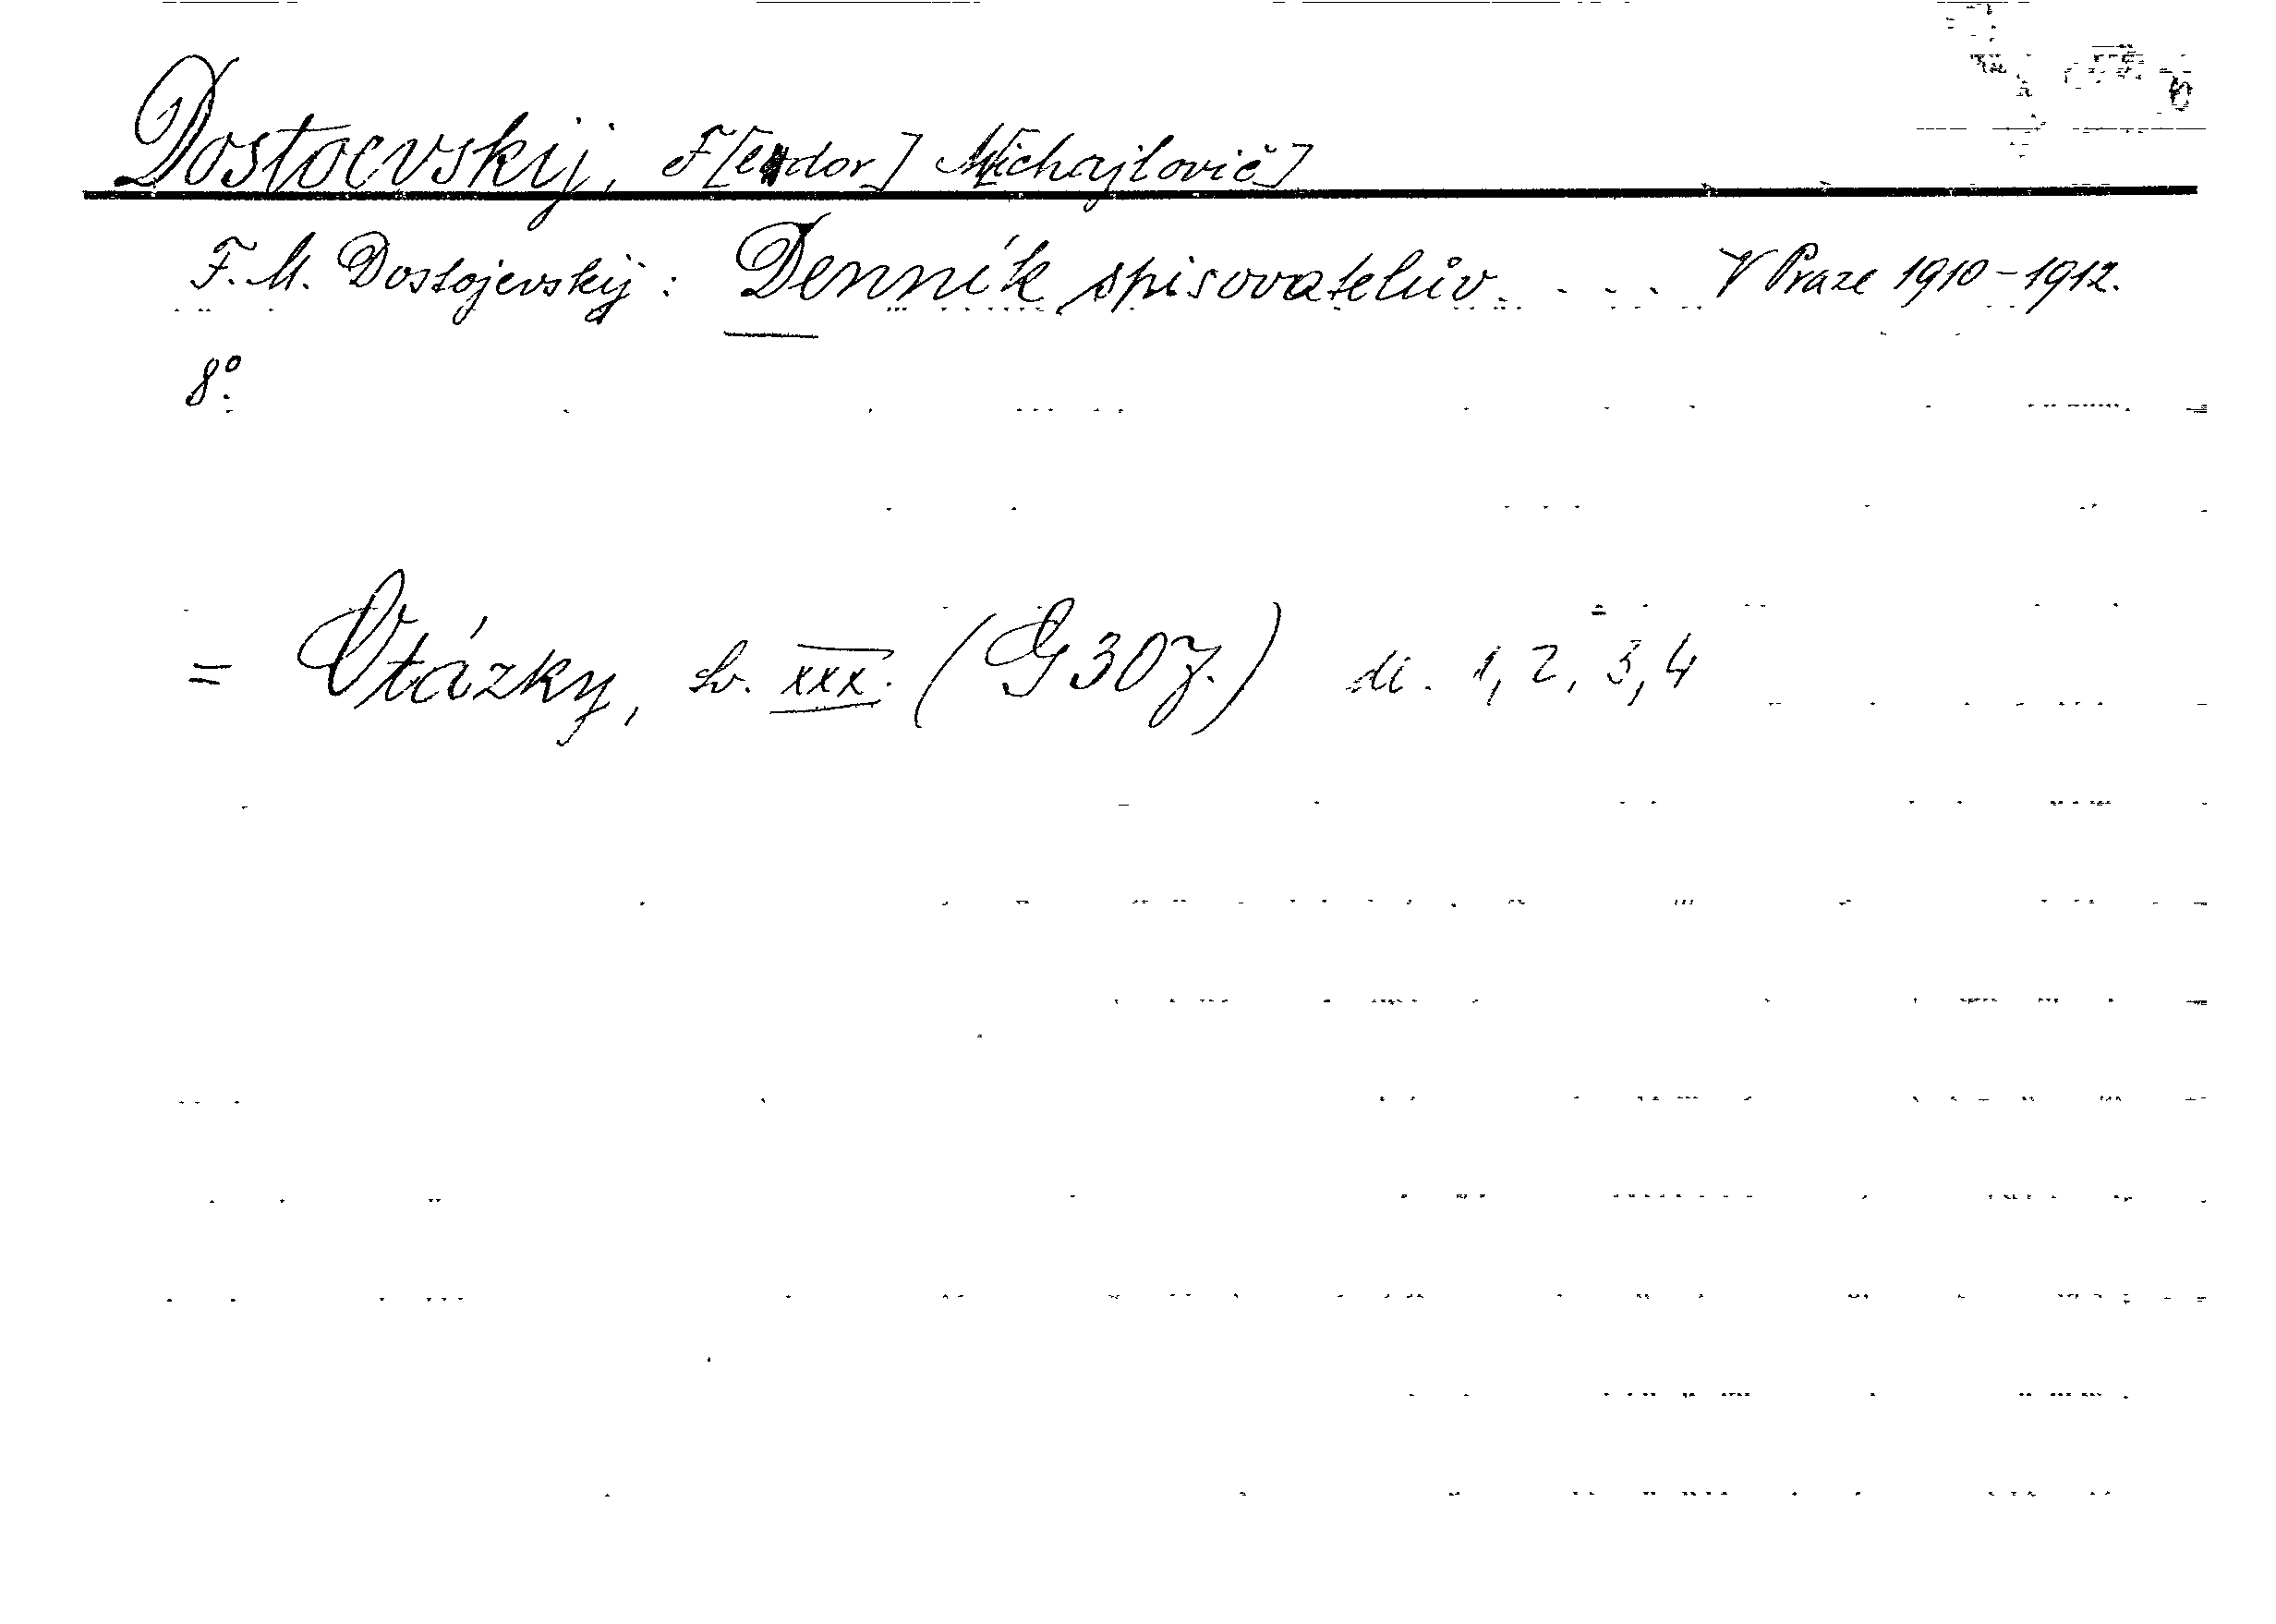 Dostoevskij, F[edor] M[ichajlovič]
F. M. Dostojevskij: Denník spisovatelův. . . . V Praze 1910–1912.
8°.
= Otázky, sv. XXX. (G 307.) dí. 1, 2, 3, 4